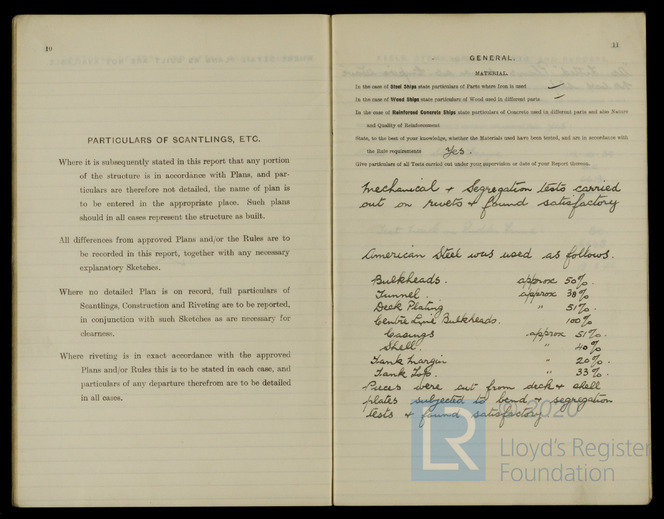 10
PARTICULARS OF SCANTLINGS, ETC.
Where it is subsequently stated in this report that any portion
of the structure is in accordance with Plans, and par-
ticulars are therefore not detailed, the name of plan is
to be entered in the appropriate place. Such plans
should in all cases represent the structure as built.
All differences from approved Plans and/or the Rules are to
be recorded in this report, together with any necessary
explanatory Sketches.
Where no detailed Plan is on record, full particulars of
Scantlings, Construction and Riveting are to be reported,
in conjunction with such Sketches as are necessary for
clearness.
Where riveting is in exact accordance with the approved
Plans and/or Rules this is to be stated in each case, and
particulars of any departure therefrom are to be detailed
in all cases.
11
GENERAL.
MATERIAL.
In the case of Steel Ships state particulars of Parts where Iron is used
In the case of Wood Ships state particulars of Wood used in different parts
In the case of Reinforced Concrete Ships state particulars of Concrete used in different parts and also Nature
and Quality of Reinforcement
State, to the best of your knowledge, whether the Materials used have been tested, and are in accordance with
the Rule requirements Yes.
Give particulars of all Tests carried out under your supervision or date of your Report thereon.
Mechanical & Segregation tests carried
out on rivets & found satisfactory
American Steel was used as follows.
Bulkheads. approx 50%.
Tunnel. approx 38%
Deck Plating " 51%.
Centre Line Bulkheads. 100%
Casings approx 51%.
Shell. " 40%.
Tank Margin " 20%.
Tank Top. " 33%.
Pieces were cut from deck & shell
plates subjected to bend & segregation
tests & found satisfactory
© 2020
LR
Lloyd's Register
Foundation